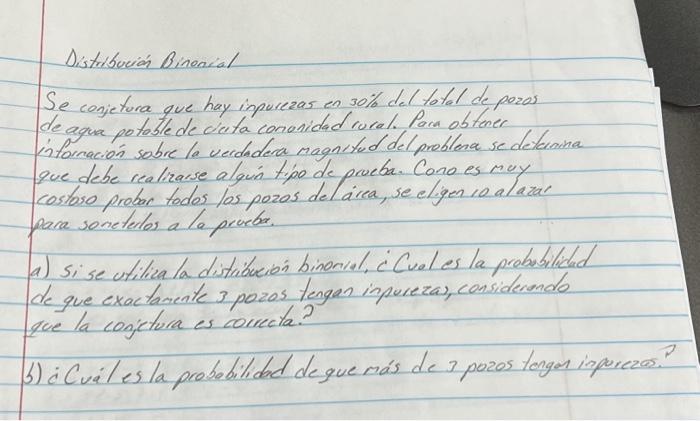 Distribución Binomial
Se conjetura que hay impurezas en 30% del total de pozos
de agua potable de cierta comunidad rural. Para obtener
información sobre la verdadera magnitud del problema se determina
que debe realizarse algún tipo de prueba. Como es muy
costoso probar todos los pozos del área, se eligen 10 al azar
para someterlos a la prueba.
a) Si se utiliza la distribución binomial, ¿Cual es la probabilidad
de que exactamente 3 pozos tengan impurezas, considerando
que la conjetura es correcta?
b) ¿Cuál es la probabilidad de que más de 3 pozos tengan impurezas?